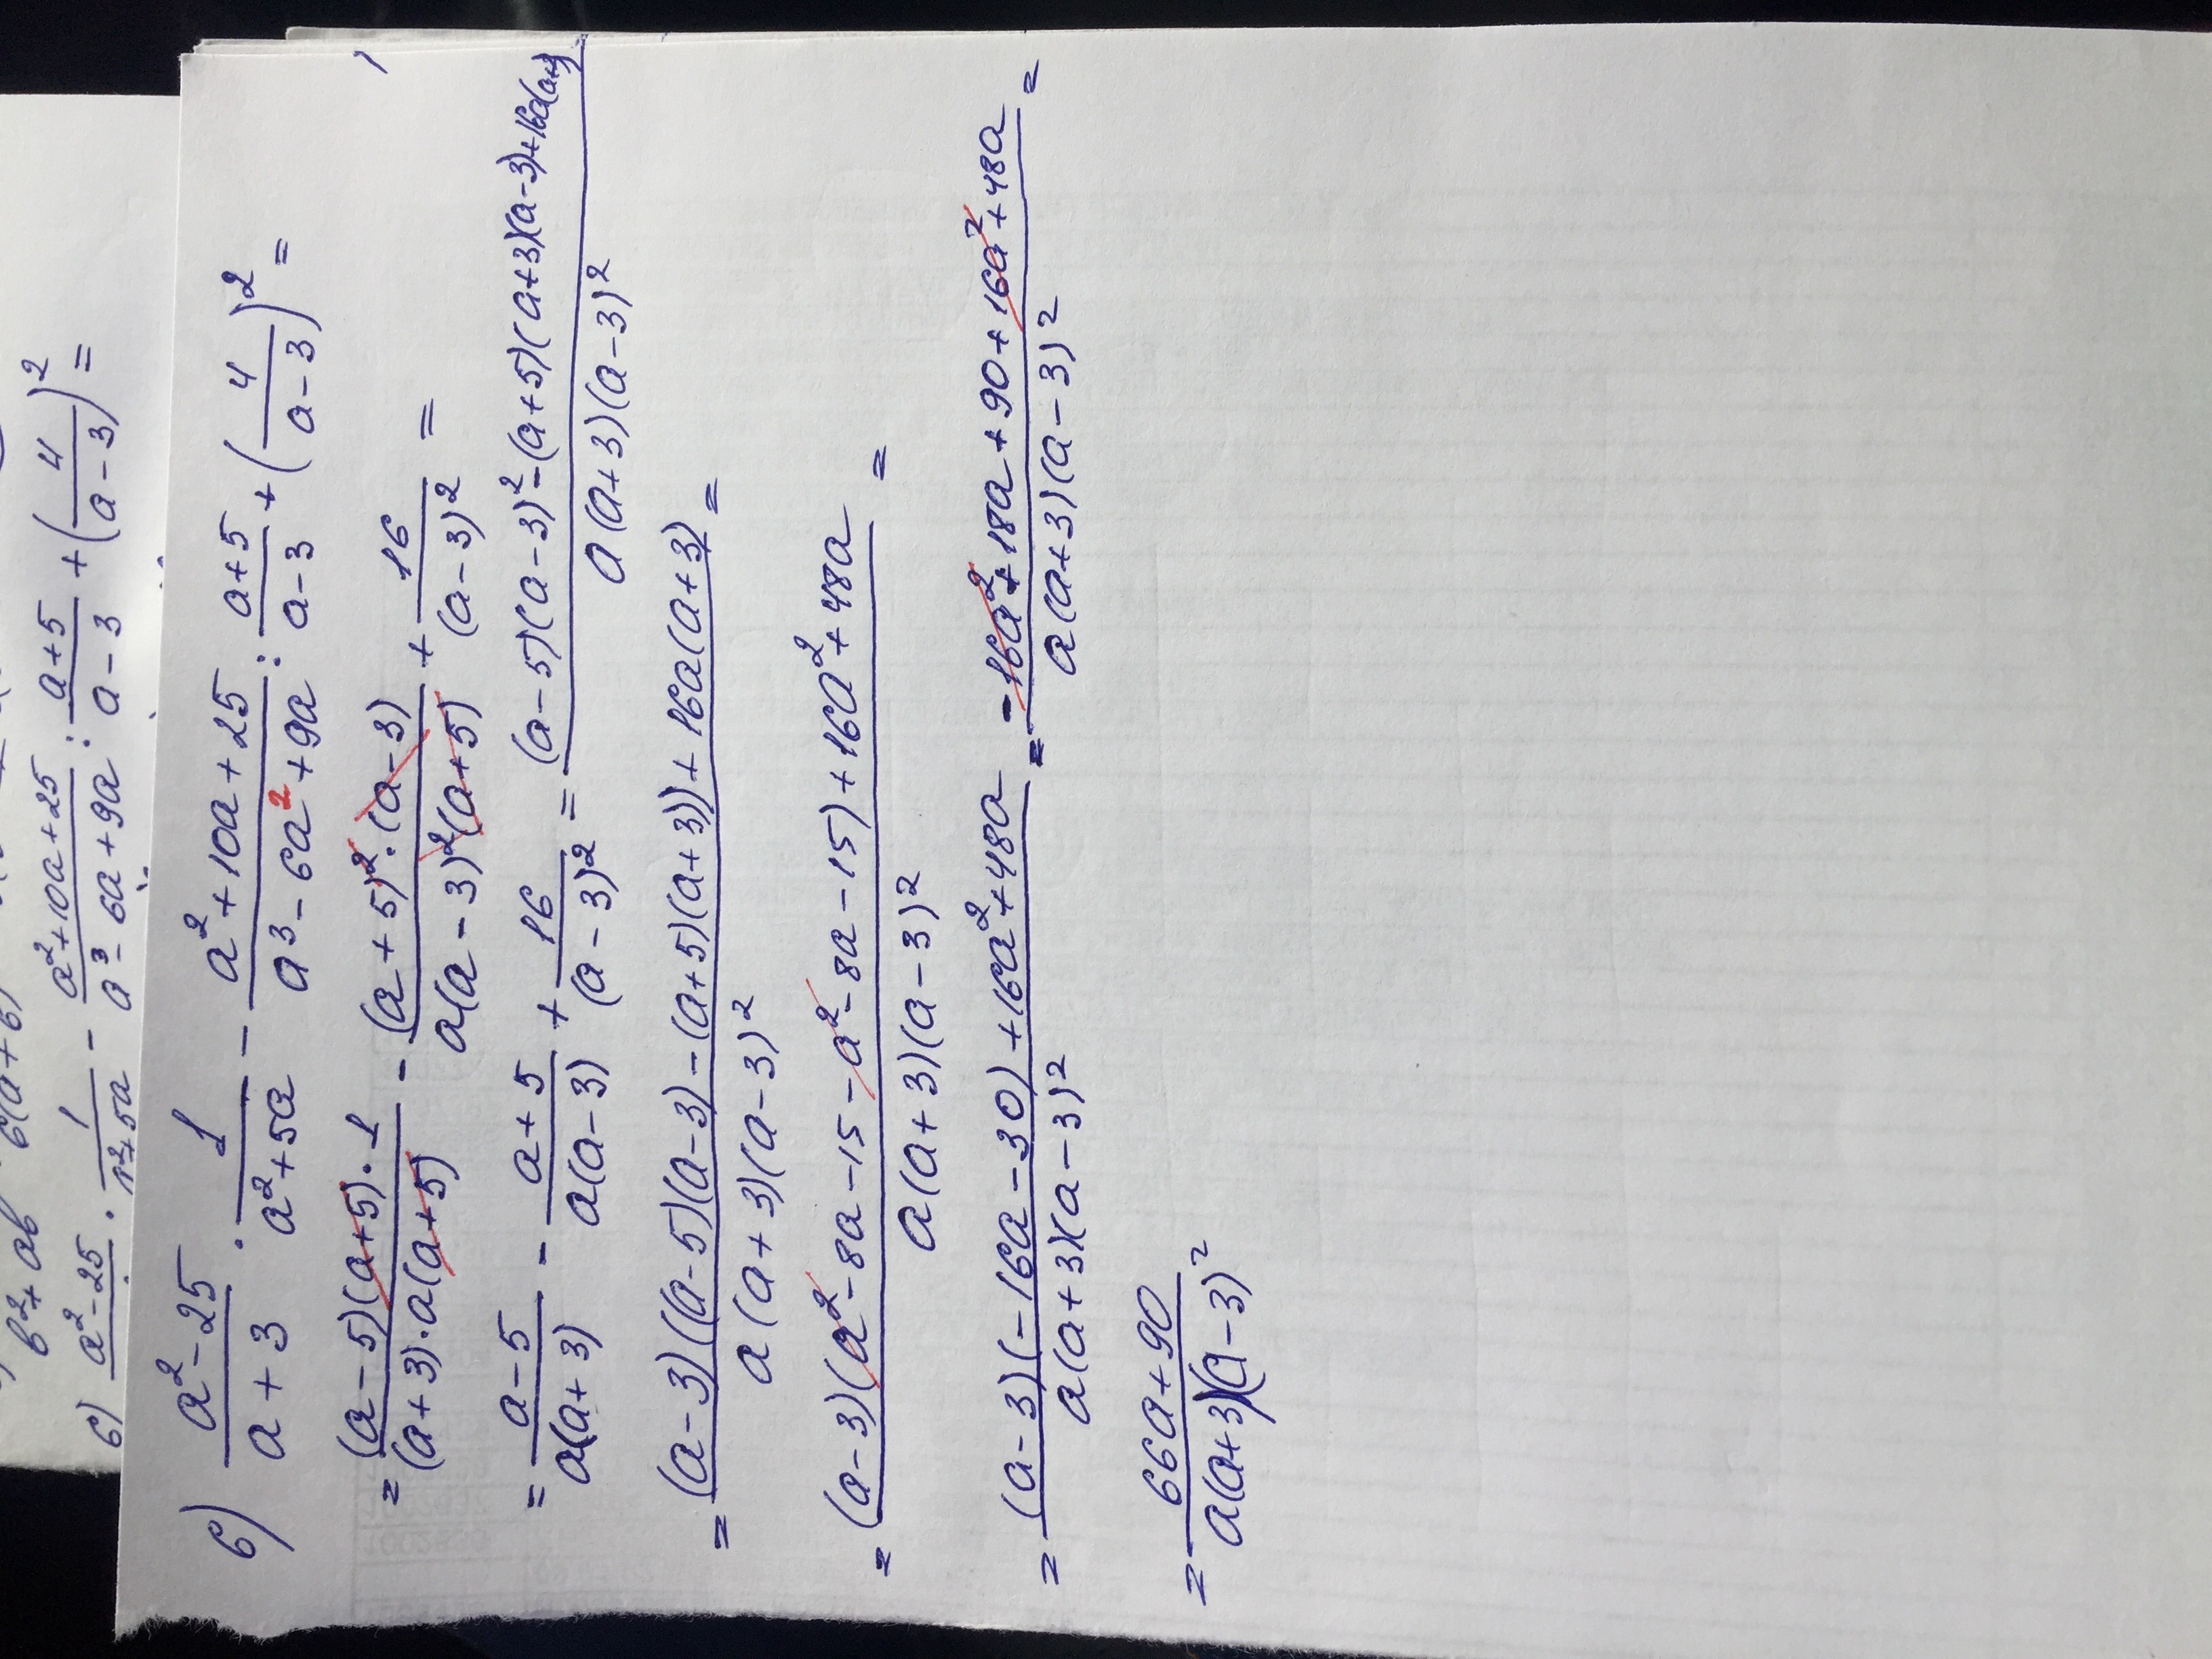 b² + ab 6(a+b)
6) (a² - 25)/ · 1/(a² + 5a) - (a² + 10a + 25)/(a³ - 6a + 9a) : (a + 5)/(a - 3) + (4/(a - 3))² =
6) (a² - 25)/(a + 3) · 1/(a² + 5a) - (a² + 10a + 25)/(a³ - 6a² + 9a) : (a + 5)/(a - 3) + (4/(a - 3))² =
= ((a - 5)(a + 5) · 1)/((a + 3) · a(a + 5)) - ((a + 5)² · (a - 3))/(a(a - 3)²(a + 5)) + 16/(a - 3)² =
= (a - 5)/(a(a + 3)) - (a + 5)/(a(a - 3)) + 16/(a - 3)² = ((a - 5)(a - 3)² - (a + 5)(a + 3)(a - 3) + 16a(a+3)/(a(a + 3)(a - 3)²)
= ((a - 3)((a - 5)(a - 3) - (a + 5)(a + 3)) + 16a(a + 3))/(a(a + 3)(a - 3)²) =
= ((a - 3)(a² - 8a - 15 - a² - 8a - 15) + 16a² + 48a)/(a(a + 3)(a - 3)²) =
= ((a - 3)(-16a - 30) + 16a² + 48a)/(a(a + 3)(a - 3)²) = (-16a² + 18a + 90 + 16a² + 48a)/(a(a + 3)(a - 3)²) =
= (66a + 90)/(a(a + 3)(a - 3)²)